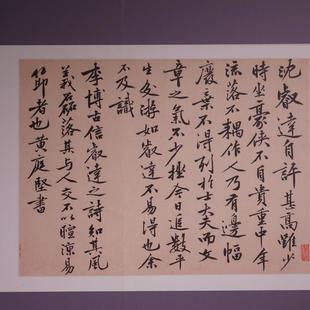 沈叡達自許甚高雖少
時坐豪俠不自貴重中年
流落不耦作人乃有邊幅
廢棄不得列於士大夫而文
章之氣不少挫今日追數平
生交游如叡達不易得也余
不及識
李博古信叡達之詩知其風
義磊落其與人交不以暄涼易
節者也黃庭堅書